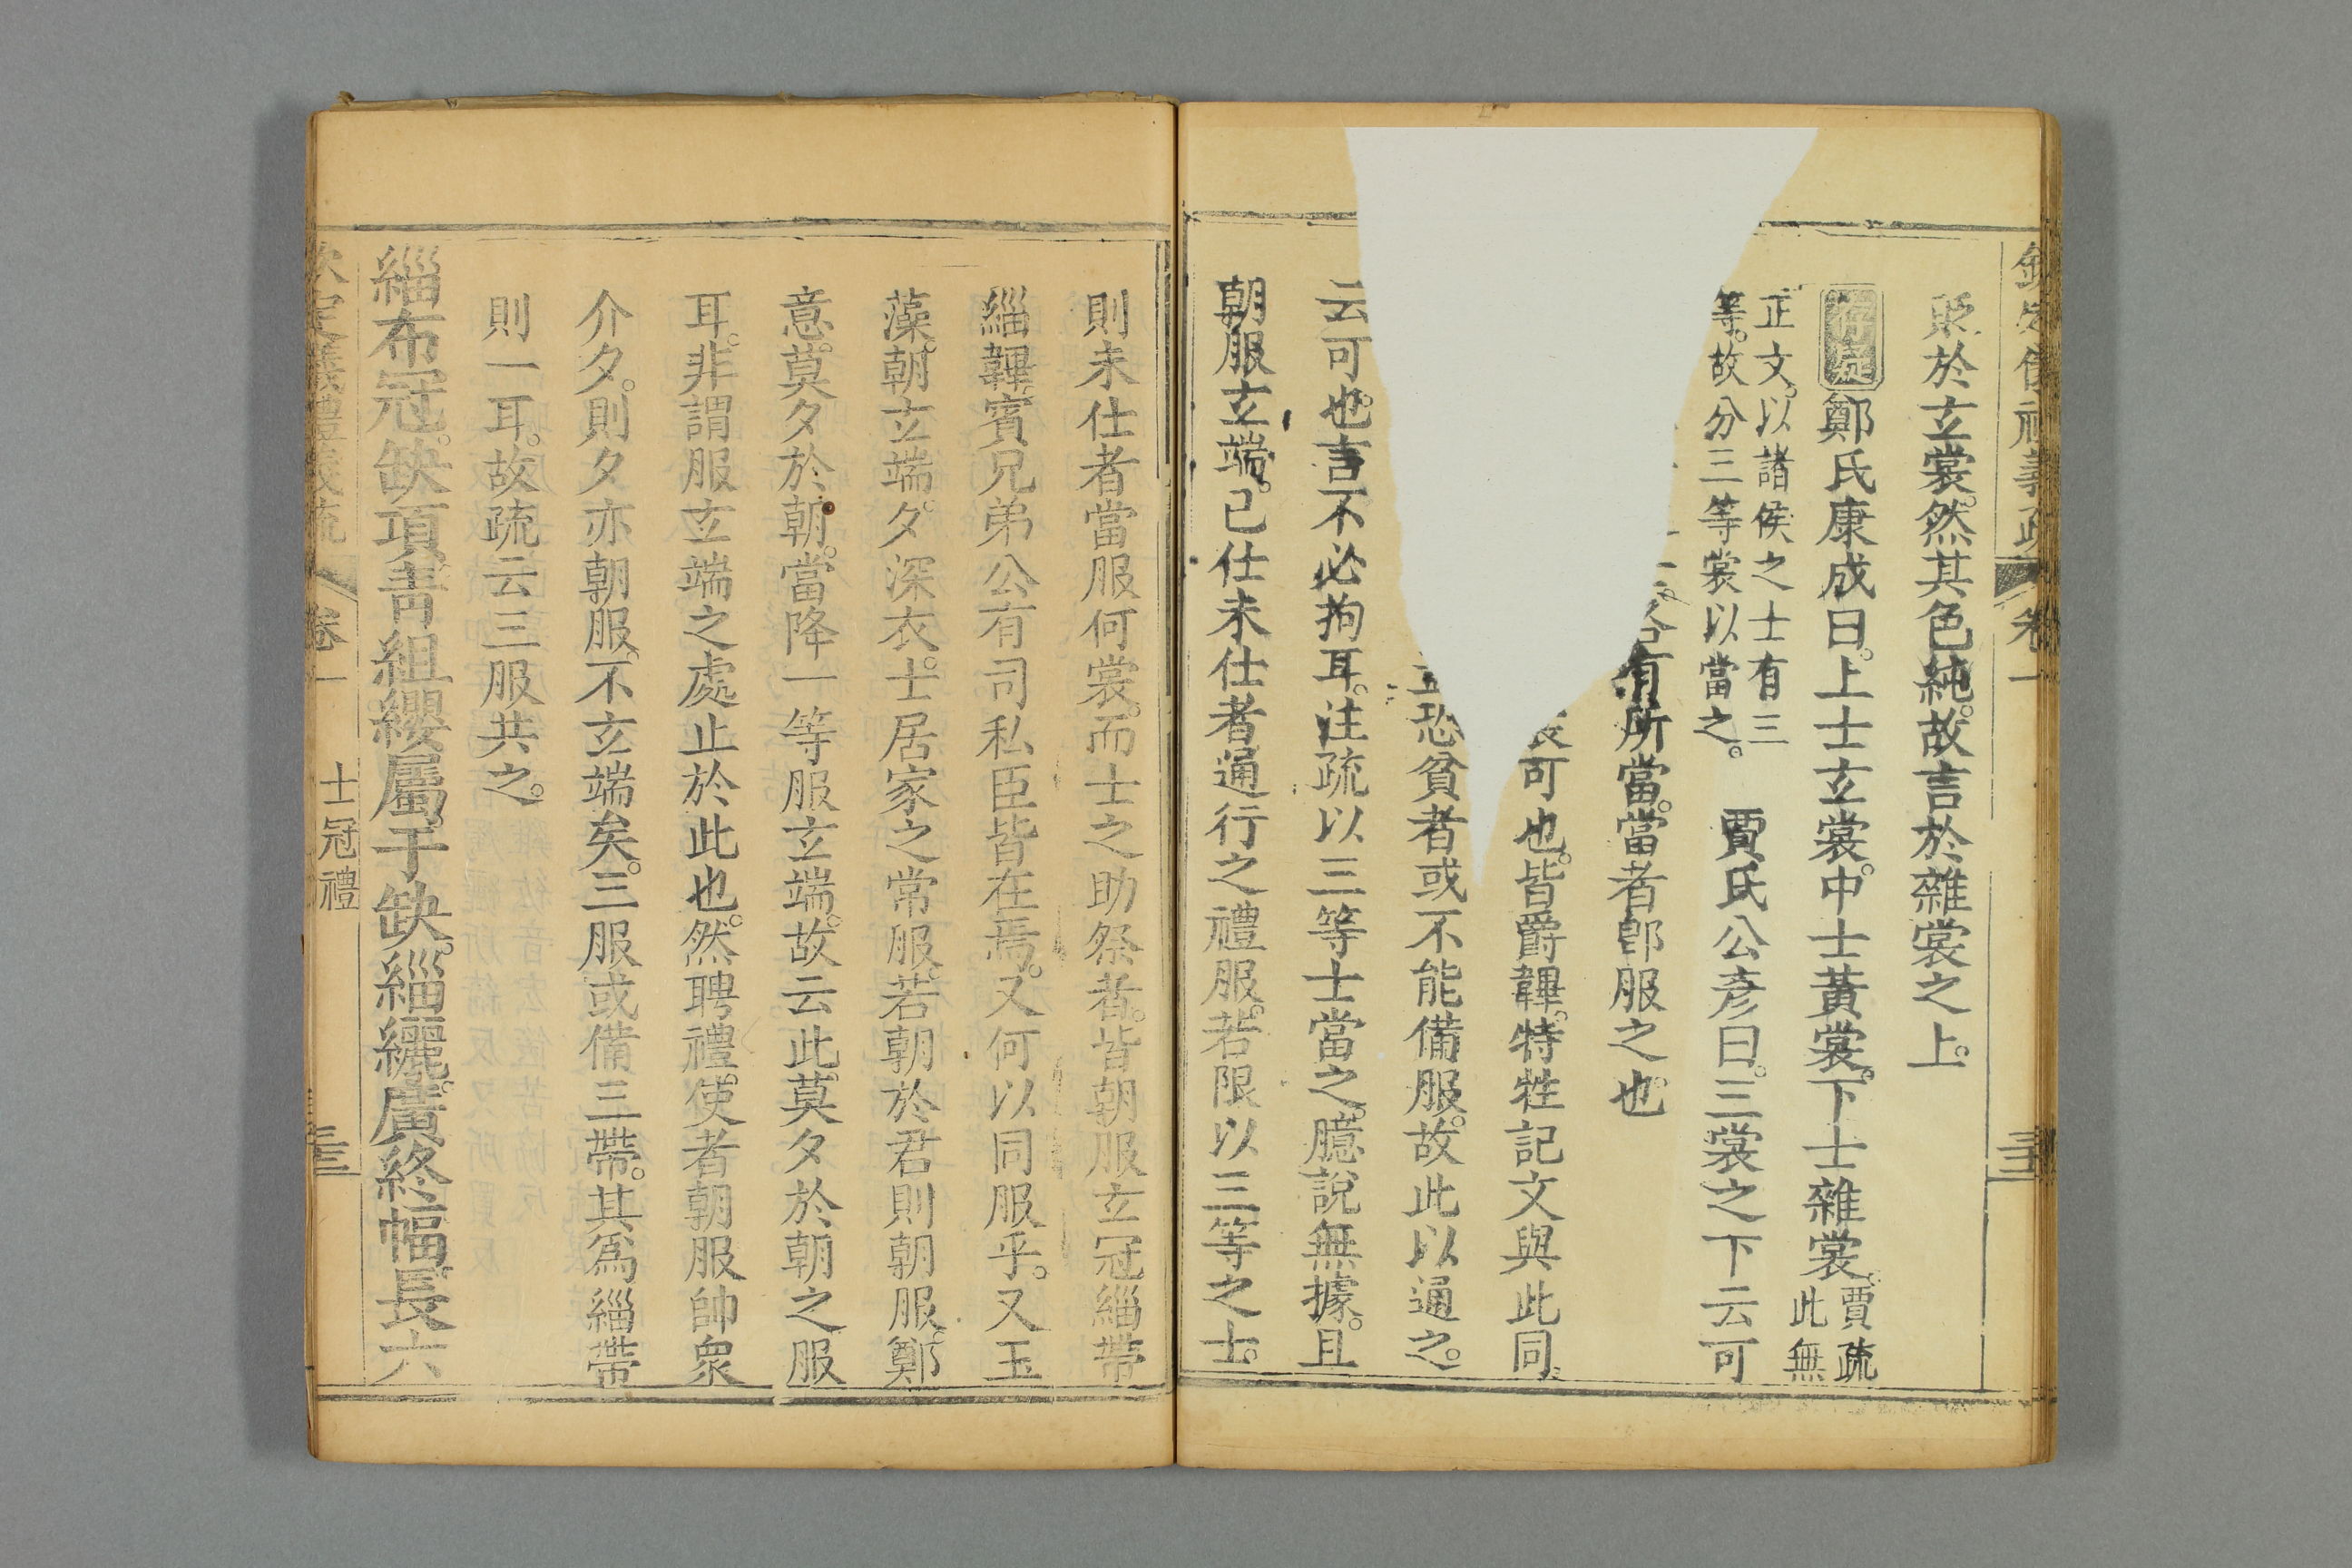 卷一
貶於玄裳。然其色純。故言於雜裳之上。
存疑鄭氏康成曰。上士玄裳。中士黃裳。下士雜裳。賈疏此無
正文。以諸侯之士有三
等。故分三等裳以當之。賈氏公彥曰。三裳之下云可
有所當。當者卽服之也。
可也。皆爵韠。特牲記文與此同。
恐貧者或不能備服。故此以通之。
云可也。言不必拘耳。注疏以三等士當之。臆說無據。且
朝服玄端。已仕未仕者通行之禮服。若限以三等之士。
則未仕者當服何裳。而士之助祭者。皆朝服玄冠緇帶
緇韠。賓兄弟公有司私臣皆在焉。又何以同服乎。又玉
藻。朝玄端。夕深衣。士居家之常服。若朝於君則朝服。鄭
意。莫夕於朝。當降一等服玄端。故云此。莫夕於朝之服
耳。非謂服玄端之處止於此也。然聘禮。使者朝服帥衆
介夕。則夕亦朝服。不玄端矣。三服或備三帶。其爲緇帶
則一耳。故疏云三服共之。
緇布冠。缺項靑組纓屬于缺。緇纚。廣終幅。長六
欽定儀禮義疏 卷一 士冠禮 三三